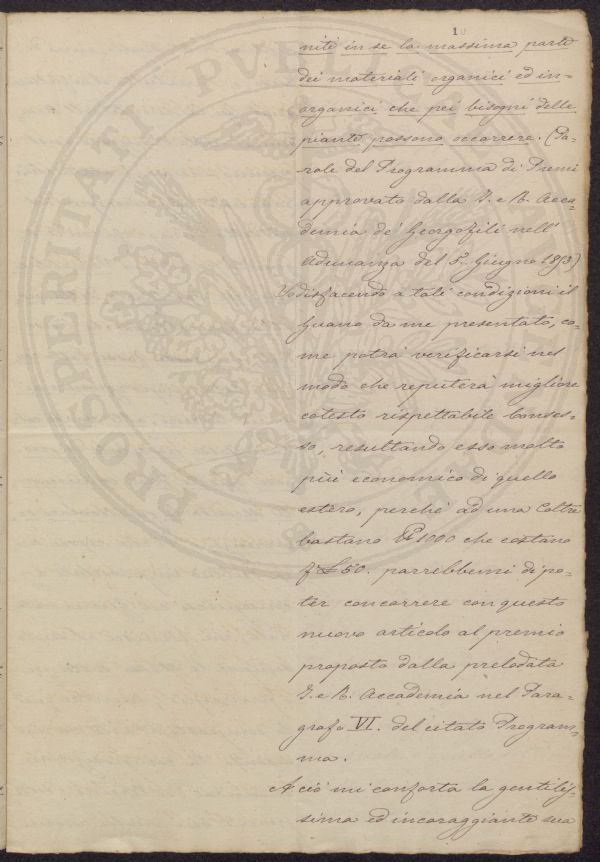 1
niti in se la massima parte
dei materiali organici ed in-
organici che pei bisogni delle
piante possono occorrere. (Pa-
role del Programma di Premi
approvato dalla I. e R. Acca-
demia de' Georgofili nell'
Adunanza del 5. Giugno 1853)
Sodisfacendo a tali condizioni il
Guano da me presentato, co-
me potrà verificarsi nel
modo che reputerà migliore
cotesto rispettabile Conses-
so, resultando esso molto
più economico di quello
estero, perchè ad una Coltre
bastano 1000 che costano
£ 50. parrebbemi di po-
ter concorrere con questo
nuovo articolo al premio
proposto dalla prelodata
I. e R. Accademia nel Para-
grafo VI. del citato Program-
ma.
A ciò mi conforta la gentilis-
sima ed incoraggiante sua
PROSPERITATI PVBLICAE